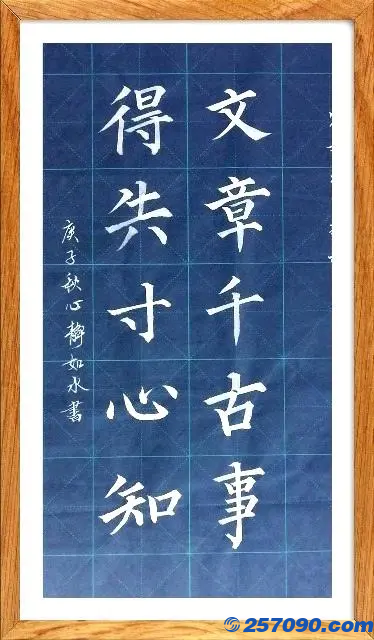 文章千古事
得失寸心知
庚子秋心静如水書
257090.com